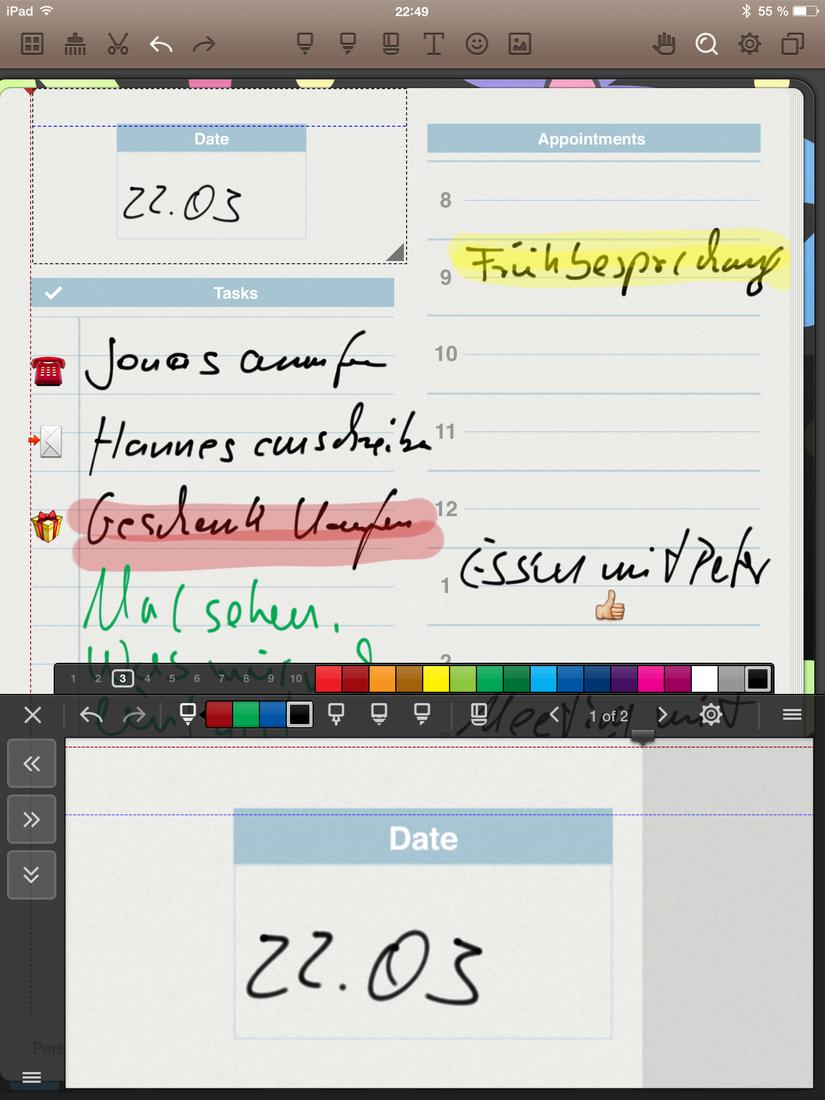 iPad 22:49 55 %
Date
22.03
Tasks
Jonas anrufen
Hannes anschreiben
Geschenk kaufen
Mal sehen,
was mir
Appointments
8
Frühbesprechung
9
10
11
12
Essen mit Peter
1
2
Meeting mit
1 2 3 4 5 6 7 8 9 10
1 of 2
Date
22.03
Pers